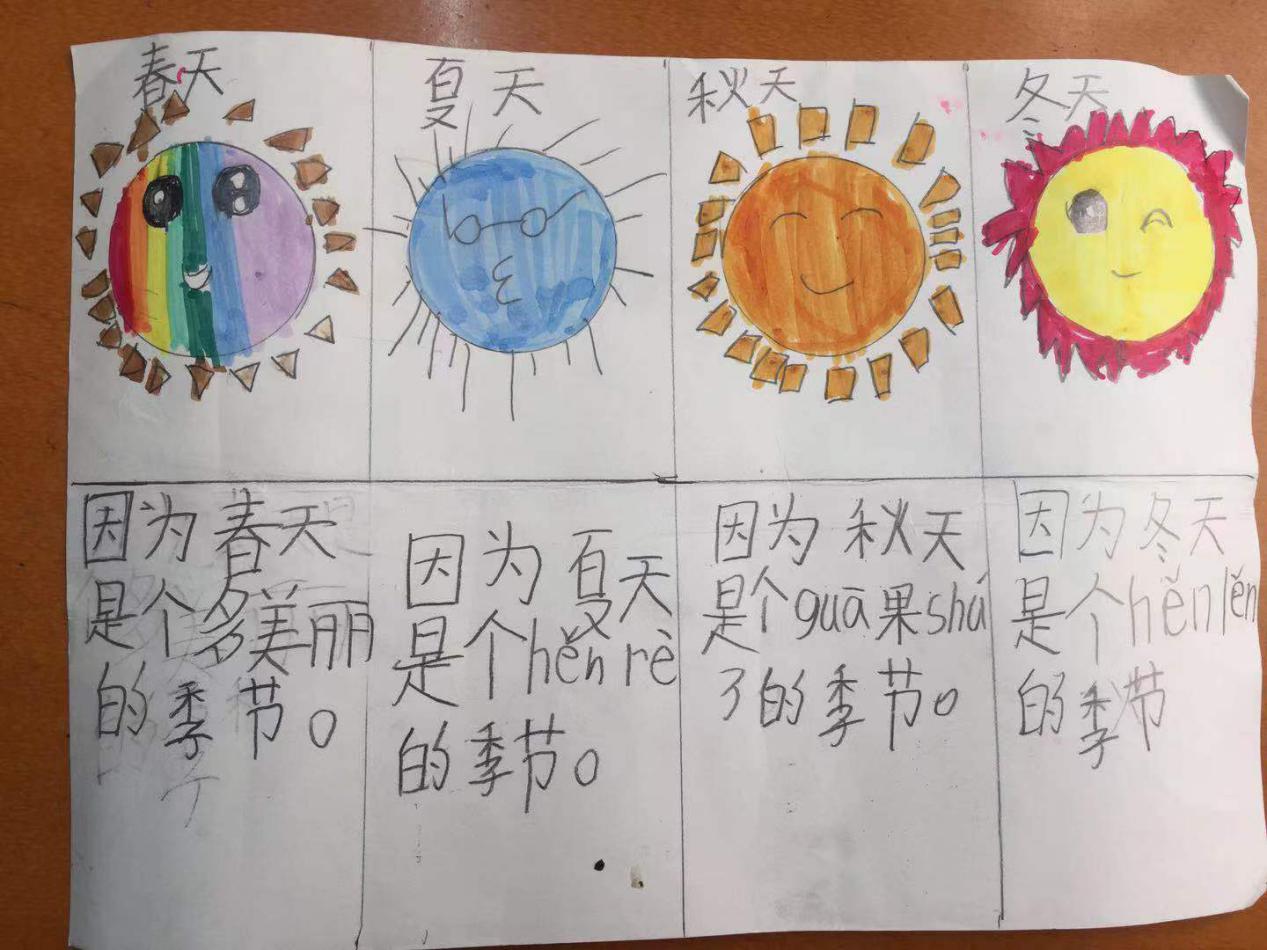 春天
夏天
秋天
冬天
因为春天
是个多美丽
的季节。
因为夏天
是个hěn rè
的季节。
因为秋天
是个guā果shú
了的季节。
因为冬天
是个hěn lěn
的季节